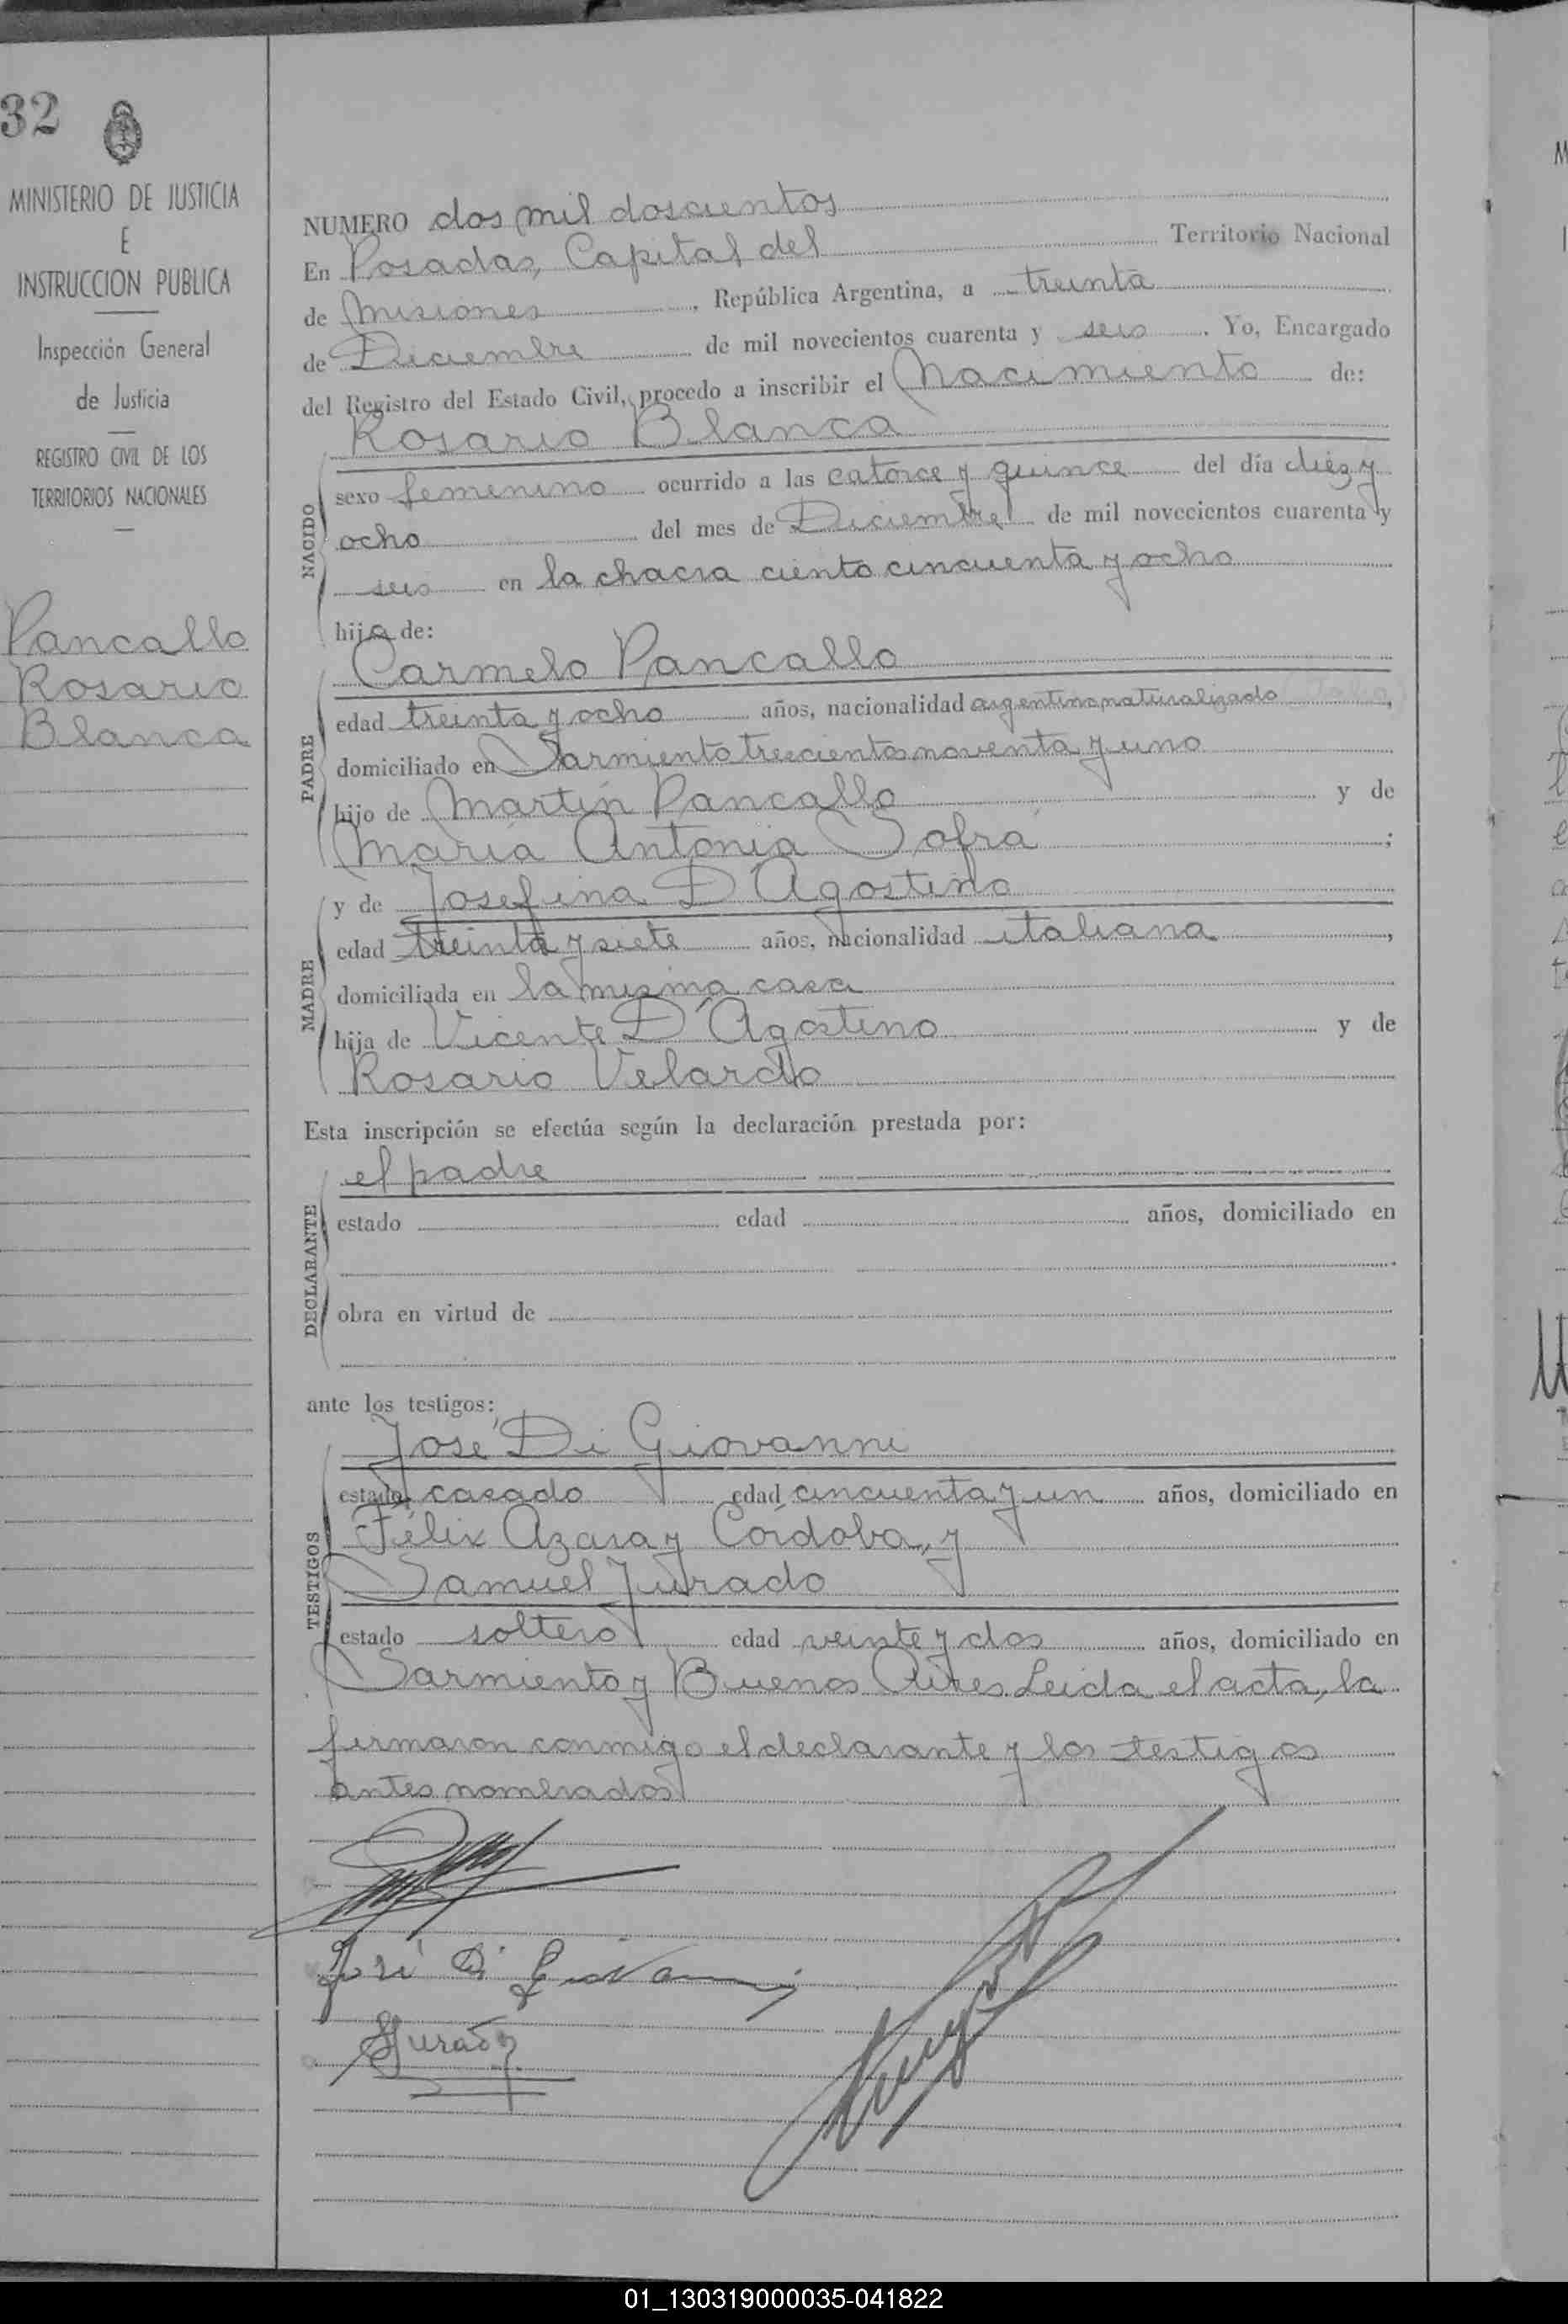 32
MINISTERIO DE JUSTICIA
E
INSTRUCCION PUBLICA
Inspección General
de Justicia
REGISTRO CIVIL DE LOS
TERRITORIOS NACIONALES
Pancallo
Rosario
Blanca
NUMERO dos mil doscientos
En Posadas, Capital del Territorio Nacional
de Misiones, República Argentina, a treinta
de Diciembre de mil novecientos cuarenta y seis. Yo, Encargado
del Registro del Estado Civil, procedo a inscribir el Nacimiento de:
Rosario Blanca
NACIDO
sexo femenino ocurrido a las catorce y quince del día diez y
ocho del mes de Diciembre de mil novecientos cuarenta y
seis en la chacra ciento cincuenta y ocho
hija de:
Carmelo Pancallo
PADRE
edad treinta y ocho años, nacionalidad argentino naturalizado,
domiciliado en Sarmiento trescientos noventa y uno
hijo de Martín Pancallo y de
María Antonia Sofrá;
y de Josefina D'Agostino
MADRE
edad treinta y siete años, nacionalidad italiana,
domiciliada en la misma casa
hija de Vicente D'Agostino y de
Rosario Velardo
Esta inscripción se efectúa según la declaración prestada por:
el padre
DECLARANTE
estado edad años, domiciliado en
obra en virtud de
ante los testigos:
José Di Giovanni
TESTIGOS
estado casado edad cincuenta y un años, domiciliado en
Félix Azara y Córdoba, y
Samuel Jurado
estado soltero edad veinte y dos años, domiciliado en
Sarmiento y Buenos Aires. Leida el acta, la
firmaron conmigo el declarante y los testigos
antes nombrados
José Di Giovanni
SJurado
01_130319000035-041822